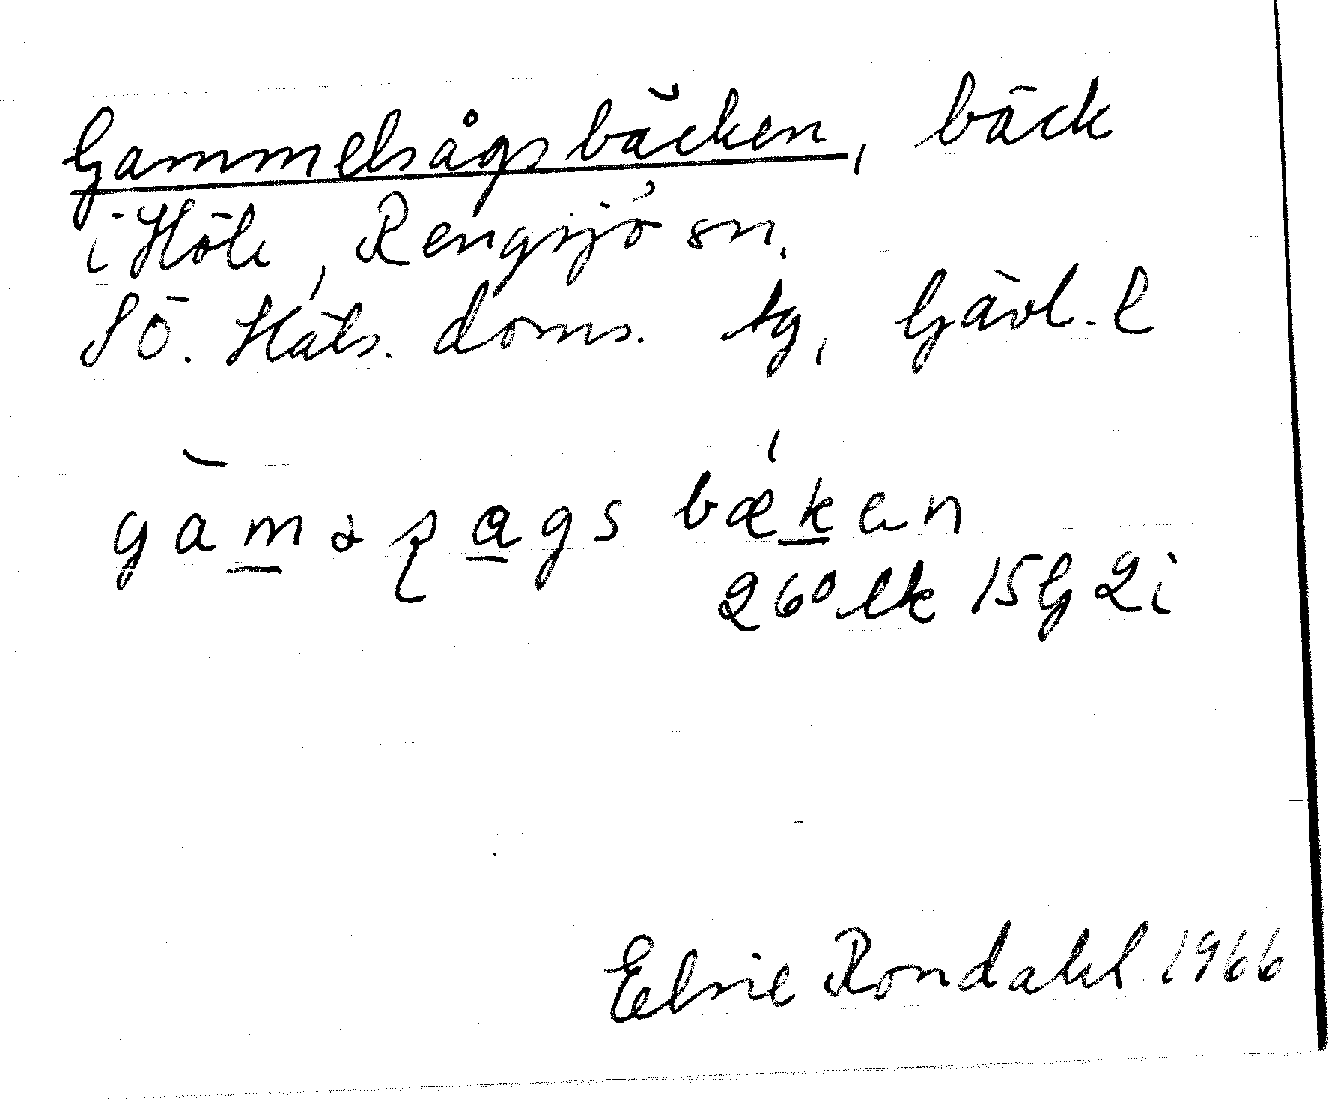 Gammelsågsbäcken, bäck
i Höle, Rengsjö sn.
Sö. Häls. doms. tg, Gävl. l
260 lk 15G 2i
Elsie Rondahl 1966